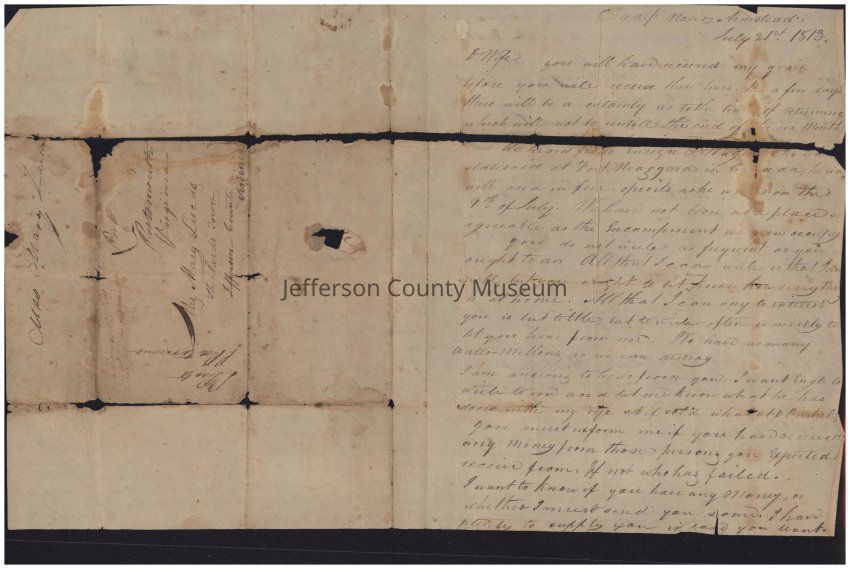 Camp Near Armstead's
July 21st 1813.
D Wife, you will have secured my grain
before you will receive these lines. In a few days
there will be a certainty as to the time of returning
which will not be untill the end of Month
We heard from Ensign
stationed at Fort in Canada, he was
well and in fine spirits as he was on the
9th of July. We have not been at a place so
agreeable as the Encampment we now occupy
you do not write as frequent as you
ought to do. All that I can write is that I am
well, but ought to let know how every thing
is at home. All that I can say to interest
you is but little, but to write often is merely to
let you hear from me. We have as many
Water Millons as we can destroy
I am anxious to hear from you. I want Engle to
write to me and let me know what he has
done with my Rye & if sold what a Bushel
you must inform me if you have received
any Money from those persons you Expected to
receive from. If not who has failed.
I want to know if you have any Money, or
whether I must send you some. I have
plenty to supply you in case you want
Mrs Mary Lucas
Portsmouth
Virginia
Mrs Mary Lucas
Charles Town
Jefferson County
Jefferson County Museum